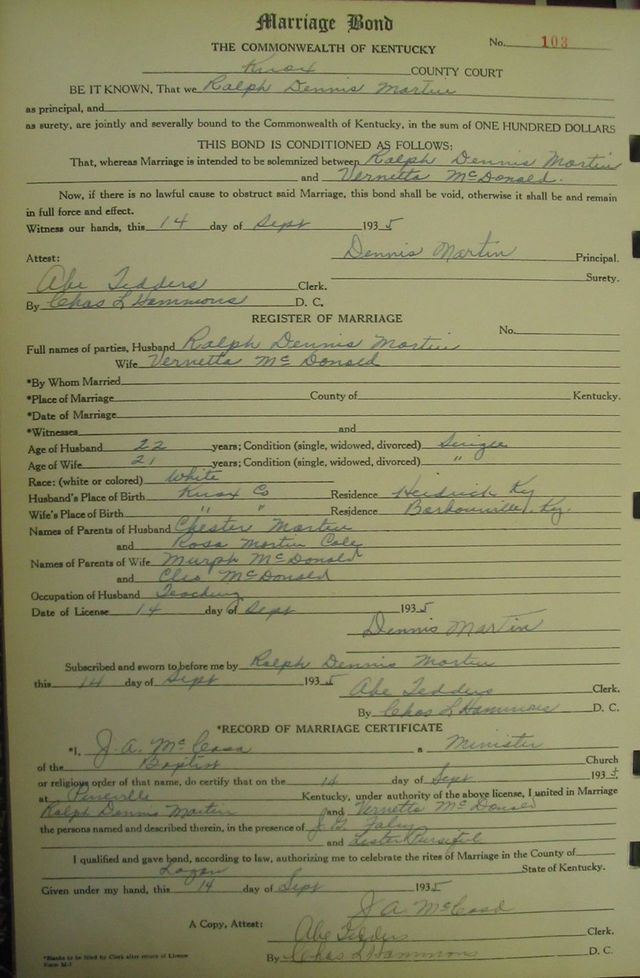 Marriage Bond
THE COMMONWEALTH OF KENTUCKY
No. 103
Knox COUNTY COURT
BE IT KNOWN, That we Ralph Dennis Martin
as principal, and
as surety, are jointly and severally bound to the Commonwealth of Kentucky, in the sum of ONE HUNDRED DOLLARS
THIS BOND IS CONDITIONED AS FOLLOWS:
That, whereas Marriage is intended to be solemnized between Ralph Dennis Martin
and Vernetta McDonald.
Now, if there is no lawful cause to obstruct said Marriage, this bond shall be void, otherwise it shall be and remain
in full force and effect.
Witness our hands, this 14 day of Sept 1935
Dennis Martin Principal.
Attest:
Surety.
Abe Tedders Clerk.
By Chas L Hammons D. C.
REGISTER OF MARRIAGE
No.
Full names of parties, Husband Ralph Dennis Martin
Wife Vernetta McDonald
*By Whom Married
*Place of Marriage County of Kentucky.
*Date of Marriage
*Witnesses and
Age of Husband 22 years; Condition (single, widowed, divorced) Single
Age of Wife 21 years; Condition (single, widowed, divorced) "
Race: (white or colored) White
Husband's Place of Birth Knox Co Residence Heidrick Ky
Wife's Place of Birth " " Residence Barbourville, Ky.
Names of Parents of Husband Chester Martin
and Rosa Martin Cole
Names of Parents of Wife Murph McDonald
and Cleo McDonald
Occupation of Husband Teaching
Date of License 14 day of Sept 1935
Dennis Martin
Subscribed and sworn to before me by Ralph Dennis Martin
this 14 day of Sept 1935
Abe Tedders Clerk.
By Chas L Hammons D. C.
*RECORD OF MARRIAGE CERTIFICATE
*I, J. A. McCord a Minister
of the Baptist Church
or religious order of that name, do certify that on the 14 day of Sept 1935
at Pineville Kentucky, under authority of the above license, I united in Marriage
Ralph Dennis Martin and Vernetta McDonald
the persons named and described therein, in the presence of J.
and Lester Pursiful
I qualified and gave bond, according to law, authorizing me to celebrate the rites of Marriage in the County of
Logan State of Kentucky.
Given under my hand, this 14 day of Sept 1935
J A McCord
A Copy, Attest: Abe Tedders Clerk.
By Chas L Hammons D. C.
*Blanks to be filled by Clerk after return of License
Form M-1